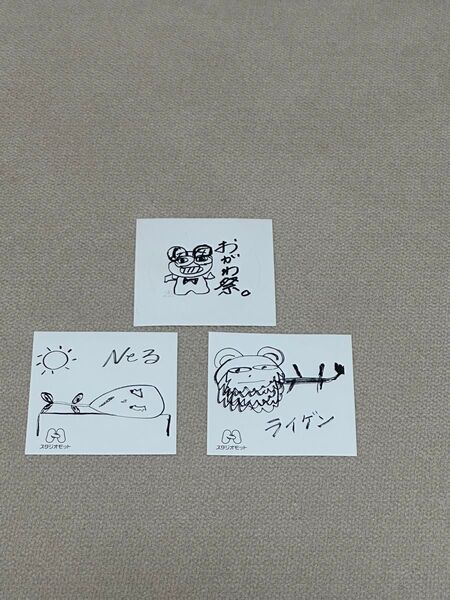 おがわ
祭。
Neる
スタジオモット
ライゲン
スタジオモット